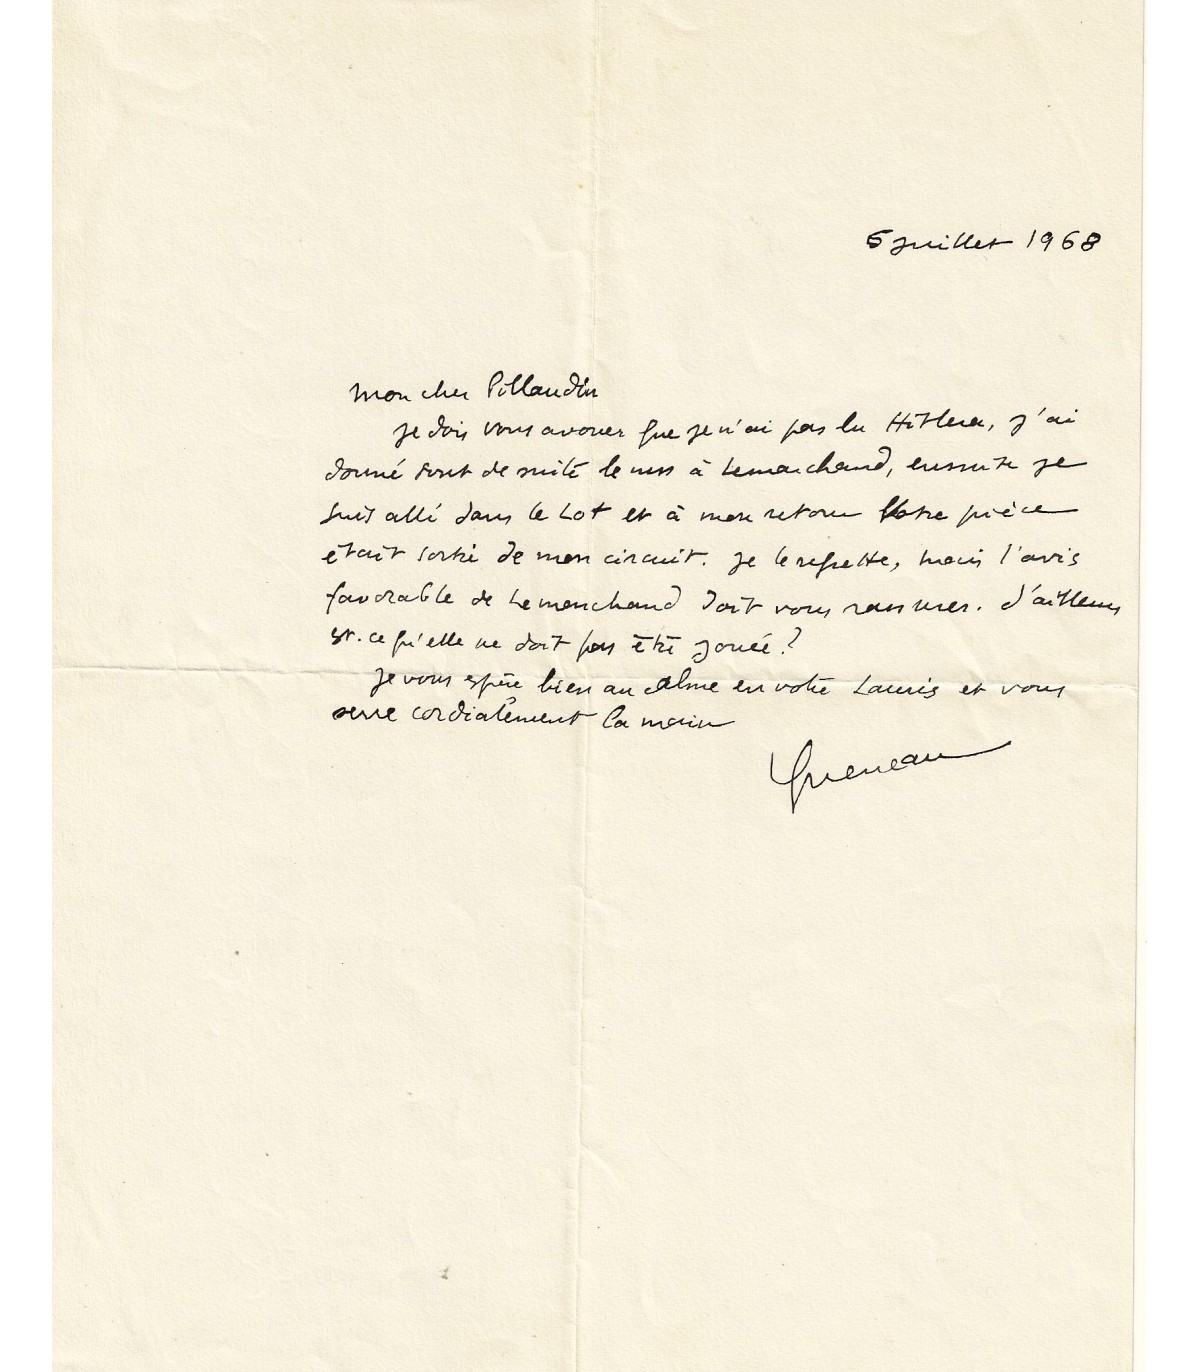 5 juillet 1968
Mon cher Pillaudin
Je dois vous avouer que je n'ai pas lu Hitlera, j'ai
donné tout de suite le mss à Lemarchand, ensuite je
suis allé dans le Lot et à mon retour Votre pièce
était sortie de mon circuit. Je le regrette, mais l'avis
favorable de Lemarchand doit vous rassurer. D'ailleurs
est-ce qu'elle ne doit pas être jouée ?
Je vous espère bien au calme en votre Lauris et vous
serre cordialement la main
Queneau